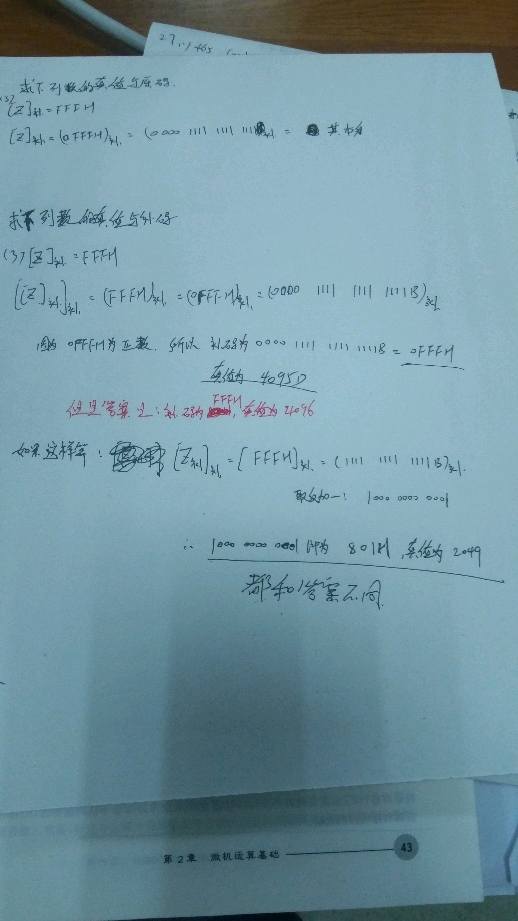 27
465
求下列数的真值与原码.
(3)
[Z]补=FFFH
[Z]补=(0FFFH)补=(0000 1111 1111 1111)补 =
求下列数的真值与补码
(3) [Z]补=FFFH
[[Z]补]补 = (FFFH)补 = (0FFFH)补 = (0000 1111 1111 1111B)补
因为 0FFFH为正数. 所以 补码为 0000 1111 1111 1111B = 0FFFH
真值为 4095D
但是答案是:补码为FFFH,真值为4096
如果这样算: [Z补]补 = [FFFH]补 = (1111 1111 1111B)补.
取反加一: 1000 0000 0001
∴ 1000 0000 0001 即为 801H ,真值为 2049
都和答案不同.
第 2 章 微机运算基础
43